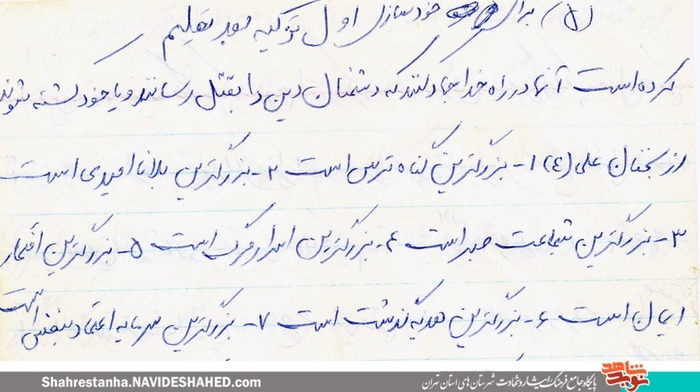 (۵) برای خودسازی اول تزکیه بعد تعلیم
کرده است آنها در راه خدا جهاد کنند که دشمنان دین را بقتل رسانند و یا خود کشته شوند
از سخنان علی (ع) ۱- بزرگترین گناه ترس است ۲- بزرگترین بلا ناامیدی است
۳- بزرگترین شجاعت صبر است ۴- بزرگترین اسرار مرگ است ۵- بزرگترین افتخار
ایمان است ۶- بزرگترین هدیه گذشت است ۷- بزرگترین سرمایه اعتماد بنفس است
Shahrestanha.NAVIDESHAHED.com
پایگاه جامع فرهنگ ایثار و شهادت شهرستان های استان تهران
نوید شاهد